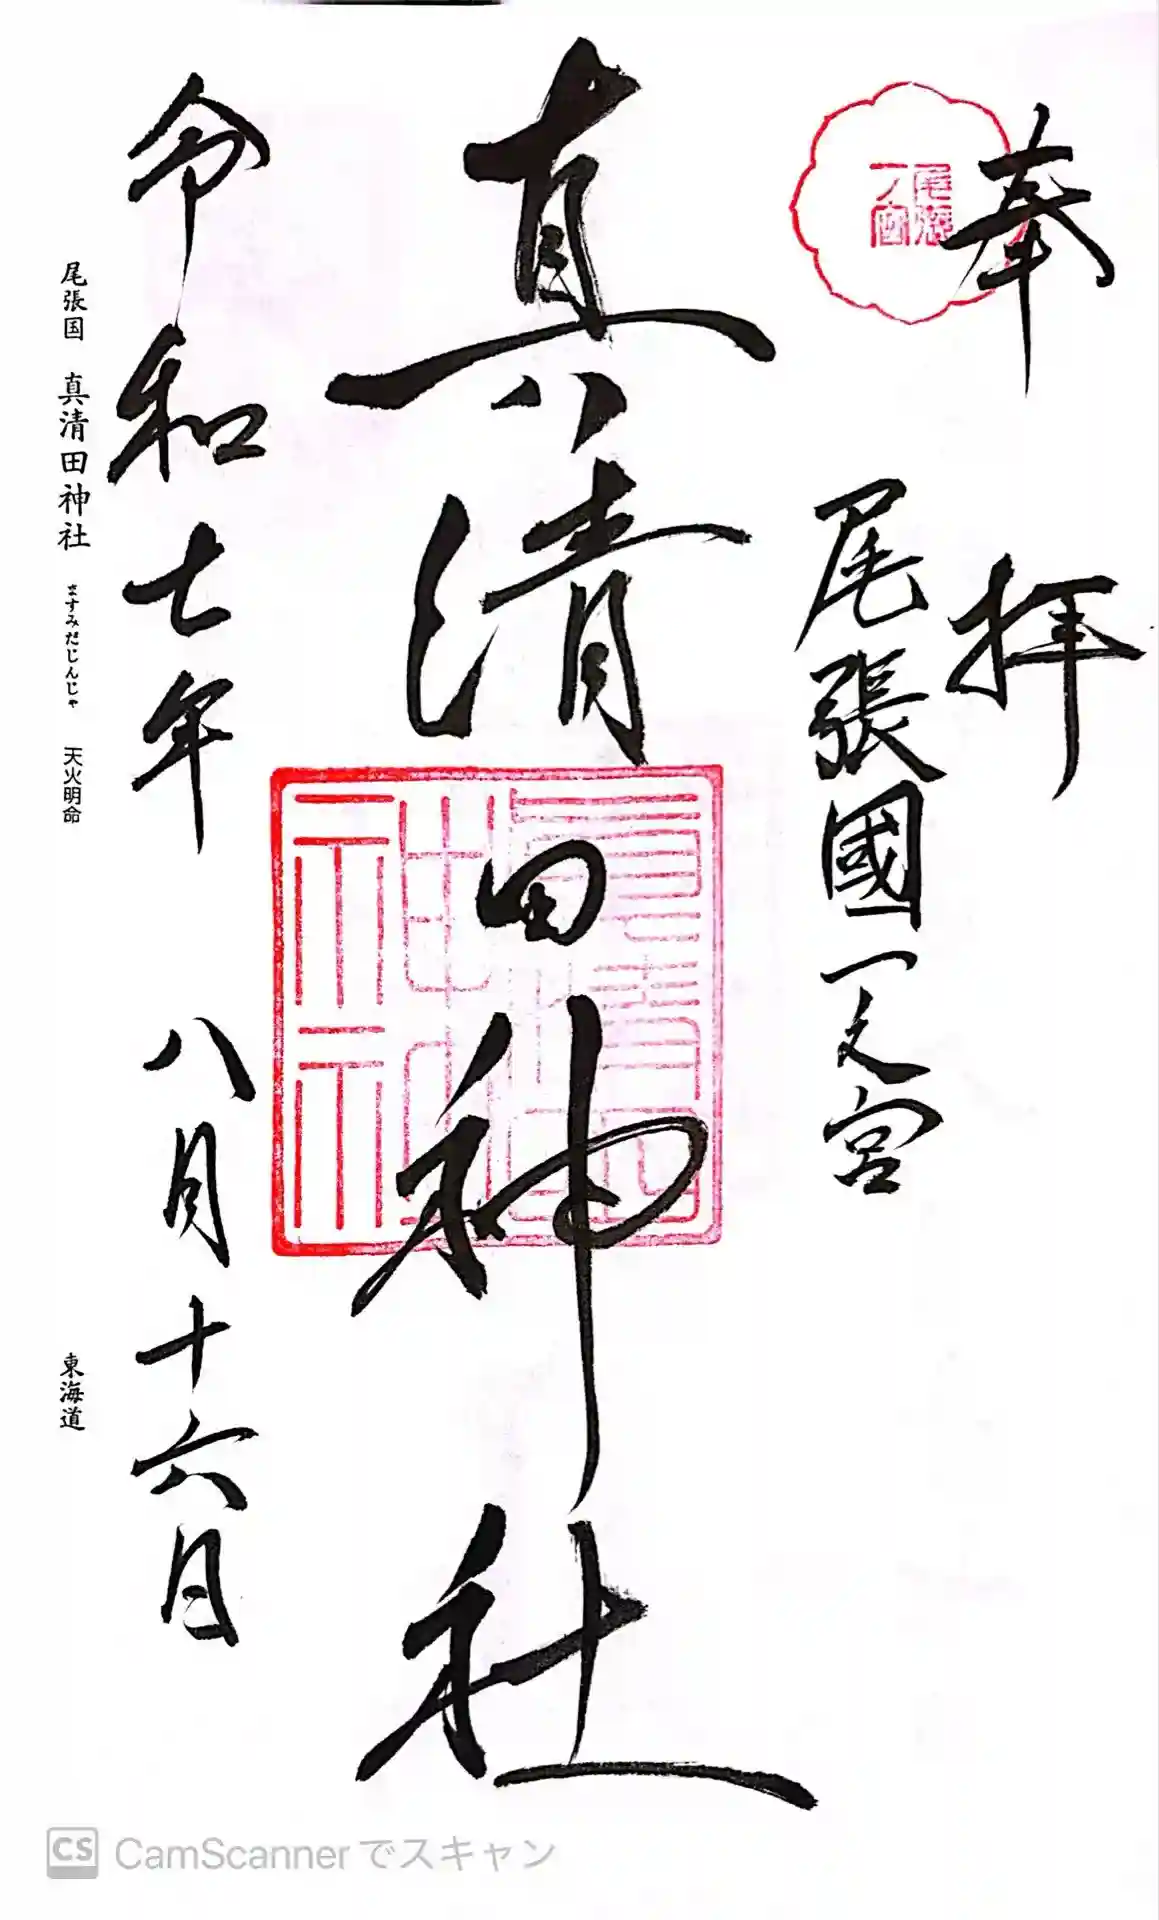 奉拝
尾張國一之宮
尾張
一ノ宮
真清田神社
令和七年 八月十六日
尾張国 真清田神社 ますみだじんじゃ 天火明命 東海道
CS CamScannerでスキャン